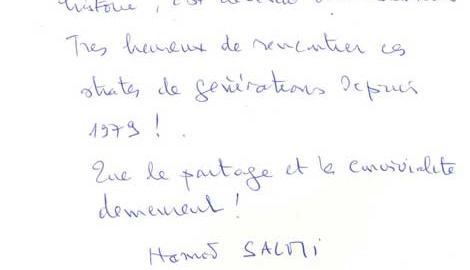 histoire, c'est
Très heureux de rencontrer ces
strates de générations Depuis
1979 !
Que le partage et la convivialité
demeurent !
Hamid SALMI